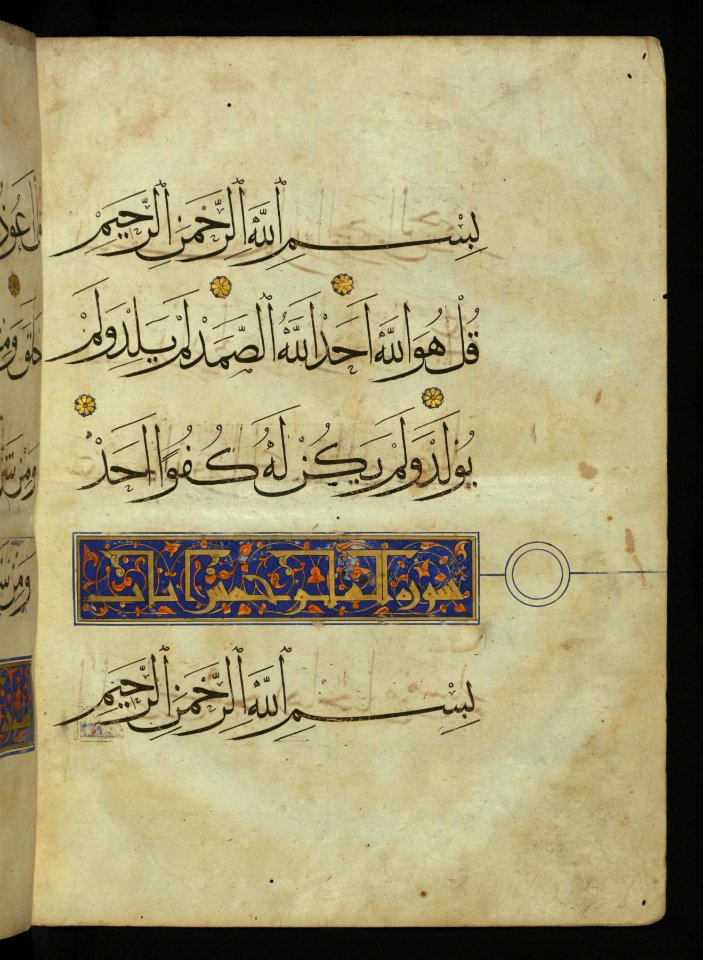 بِسْمِ اللَّهِ الرَّحْمَنِ الرَّحِيمِ
قُلْ هُوَ اللَّهُ اَحَدٌ اَللَّهُ الصَّمَدُ لَمْ يَلِدْ وَلَمْ
يُولَدْ وَلَمْ يَكُنْ لَهُ كُفُوًا اَحَدٌ
سورة الفلق خمس آيات
بِسْمِ اللَّهِ الرَّحْمَنِ الرَّحِيمِ